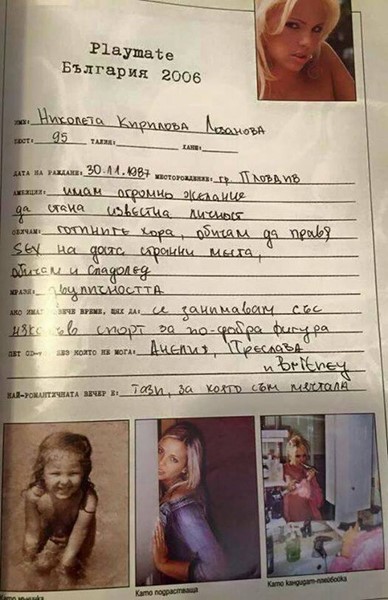 Playmate
България 2006
ИМЕ: Николета Кирилова Лозанова
БЮСТ: 95 ТАЛИЯ: ХАНШ:
ДАТА НА РАЖДАНЕ: 30.11.1987 МЕСТОРОЖДЕНИЕ: гр. Пловдив
АМБИЦИИ: имам огромно желание
да стана известна личност
ОБИЧАМ: готините хора, обичам да правя
SEX на доста странни места,
обичам и сладолед
МРАЗЯ: двуличността
АКО ИМАМ ПОВЕЧЕ ВРЕМЕ, ЩЯХ ДА: се занимавам със
някакъв спорт за по-добра фигура
ПЕТ CD-ТА, БЕЗ КОИТО НЕ МОГА: Анелия, Преслава
и Britney
НАЙ-РОМАНТИЧНАТА ВЕЧЕР Е: Тази, за която съм мечтала
Като мъничка
Като подрастваща
Като кандидат-плейбойка